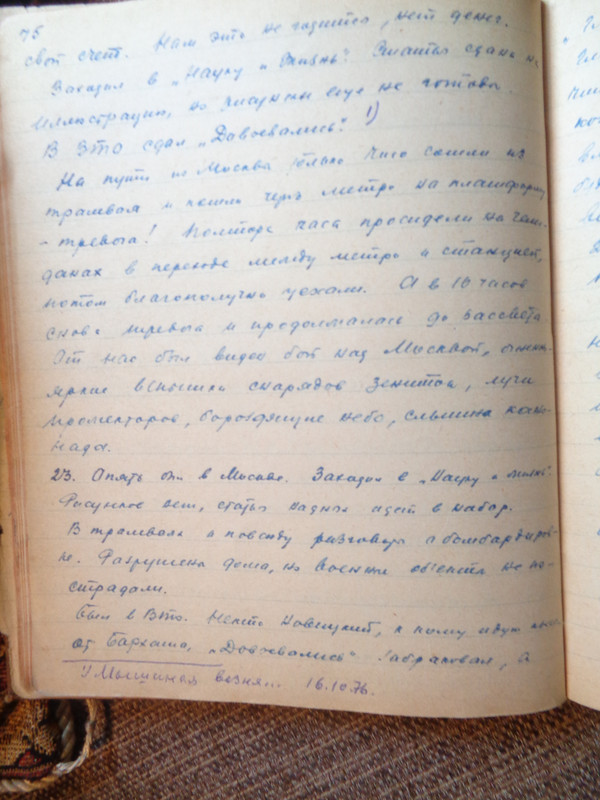 75
свой счет. Нам это не годится, нет денег.
Заходил в „Науку и Жизнь“. Статья сдана на
иллюстрацию, но рисунки еще не готовы.
В ВТО сдал „Довоевались“. 1)
На пути из Москвы только что сошли из
трамвая и пошли через метро на платформу
- тревога! Полтора часа просидели на чемо-
данах в переходе между метро и станцией,
потом благополучно уехали. А в 10 часов
снова тревога и продолжалась до рассвета.
От нас был виден бой над Москвой, очень
яркие вспышки снарядов зениток, лучи
прожекторов, бороздящие небо, слышна кано-
нада.
23. Опять был в Москве. Заходил в „Науку и жизнь“.
Рисунков нет, статья на днях идет в набор.
В трамваях и повсюду разговоры о бомбардиров-
ке. Разрушены дома, но военные объекты не по-
страдали.
Был в ВТО. Некто Новицкий, к нему иду
от Бархаша, „Довоевались“ забраковал, а
1) Мышиная возня... 16.10.76.